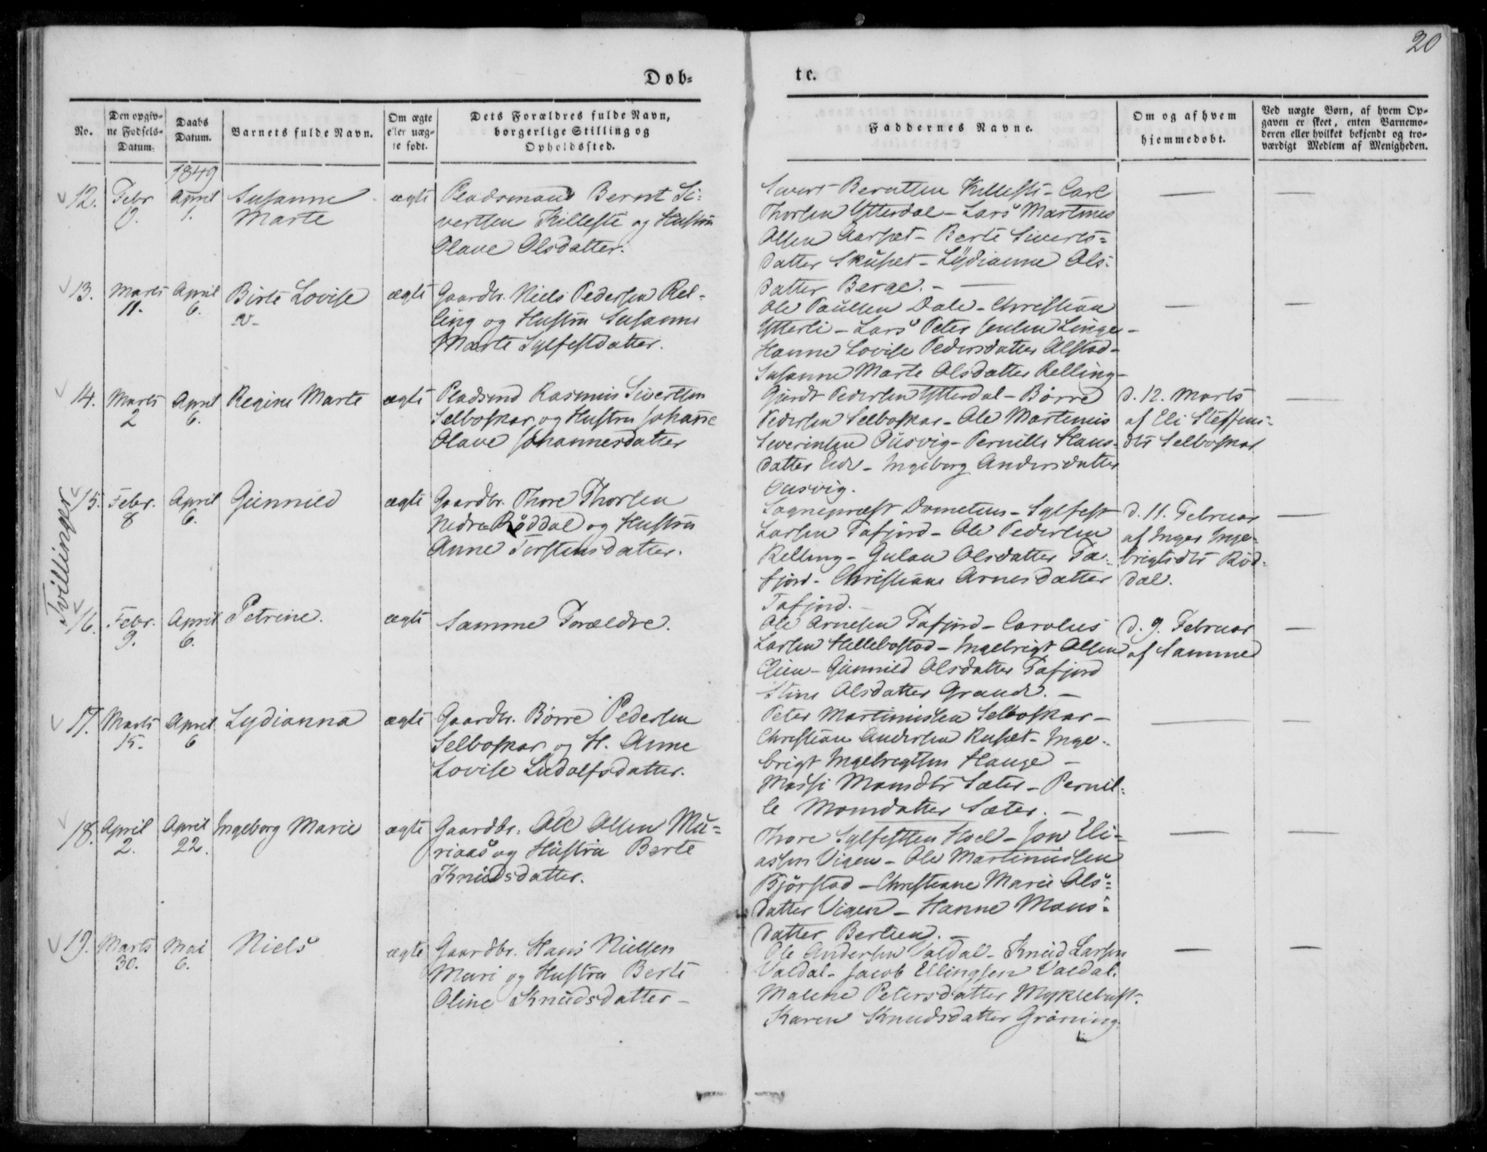 20
Døb-
te.
No.
Den opgiv-
ne Fødsels-
Datum.
Daabs
Datum.
Barnets fulde Navn.
Om ægte
eller uæg-
te født.
Dets Forældres fulde Navn,
borgerlige Stilling og
Opholdssted.
Faddernes Navne.
Om og af hvem
hjemmedøbt.
Ved uægte Børn, af hvem Op-
gaven er skeet, enten Barnemo-
deren eller hvilket bekjendt og tro-
værdigt Medlem af Menigheden.
1849
12.
Febr.
9.
April
1.
Susanne
Marte
ægte
Pladsmand Bernt Si-
vertsen Killesti og Hustru
Olave Olsdatter.
Sivert Berntsen Killesti - Carl
Thorsen Ytterdal - Lars Martinus
Olsen Aarset - Berte Siverts-
datter Skuset - Lydianne Ols-
datter Berge. -
13.
Marts
11.
April
6.
Birte Lovise
ægte
Gaardbr. Niels Pedersen Rel-
ling og Hustru Susanne
Marte Sylfestdatter.
Ole Paulsen Dale - Christian
Ytterli - Lars Peter Linge -
Hanne Lovise Pedersdatter Alstad -
Susanne Marte Olsdatter Relling -
14.
Marts
2
April
6.
Regine Marte
ægte
Pladsmd Rasmus Sivertsen
Selboskar og Hustru Johanne
Olave Johannesdatter
Pedersen Ytterdal - Børre
Pedersen Selboskar - Ole Martinus
Severinsen Øusvig - Pernille Hans-
datter Eide - Ingeborg Andersdatter
Øusvig.
d. 12. Marts
af Eli Steffens-
dtr Selboskar
Tvillinger
15.
Febr.
8
April
6.
Gunnild
ægte
Gaardbr. Thore Thorsen
Nedre Røddal og Hustru
Anne Torstensdatter.
Sognepræst Dometius - Sylfest
Larsen Tafjord - Ole Pedersen
Relling - Gulau Olsdatter Ta-
fjord - Christiane Arnesdatter
Tafjord.
d. 11. Februar
af Inger Inge-
brigtsdtr Rød-
dal.
16.
Febr.
9.
April
6.
Petrine.
ægte
Samme Forældre.
Ole Arnesen Tafjord - Carolus
Larsen Hellebostad - Ingebrigt Olsen
Øien - Gunnild Olsdatter Tafjord
Stine Olsdatter Grande. -
d. 9. Februar
af Samme
17.
Marts
15.
April
6
Lydianna
ægte
Gaardbr. Børre Pedersen
Selboskar og H. Anne
Lovise Ludolfsdatter.
Peter Martinussen Selboskar -
Christian Andersen Ruset - Inge-
brigt Ingebrigtsen Hauge -
Massi Monsdtr Sæter - Pernil-
le Monsdatter Sæter. -
18.
April
2.
April
22.
Ingeborg Marie
ægte
Gaardbr. Ole Olsen Mu-
riaas og Hustru Berte
Knudsdatter.
Thore Sylfestsen Hoel - Jon Eli-
assen Vigen - Ole Martinussen
Bjørstad - Christiane Marie Ols-
datter Vigen - Hanne Mons-
datter Berlien. -
19.
Marts
30.
Mai
6.
Niels
ægte
Gaardbr. Hans Nielsen
Muri og Hustru Berte
Oline Knudsdatter -
Ole Andersen Valdal - Knud Larsen
Valdal - Jacob Ellingsen Valdal.
Malene Petersdatter Myklebust -
Karen Knudsdatter Grøning.